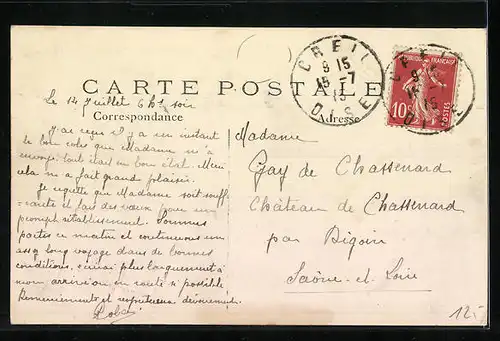 CARTE POSTALE
Correspondance
Adresse
CREIL
9 15
15 -7
15
OISE
RÉPUBLIQUE FRANÇAISE
10c
POSTES
CREIL
9
15
15
OISE
Le 14 Juillet 6h ½ soir
J'ai reçu il y a un instant
le bon colis que Madame m'a
envoyé, tout était en bon état. Merci
cela m'a fait grand plaisir.
Je regrette que Madame soit souff-
-rante et fais des vœux pour un
prompt rétablissement. Sommes
partis ce matin et continuons un
assez long voyage dans de bonnes
conditions, écrirai plus longuement à
mon arrivée ou en route si possible
Remerciements et respectueux dévouement.
Madame
Gay de Chassenard
Château de Chassenard
par Digoin
Saône-et-Loire
12.-